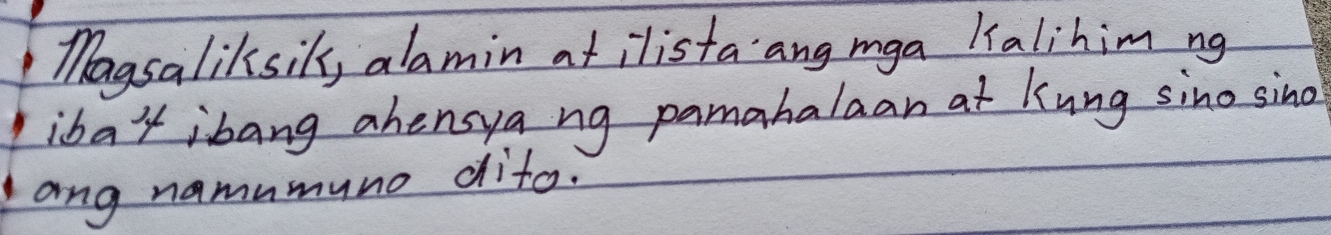 Magsaliksik, alamin at ilista ang mga Kalihim ng
iba't ibang ahensya ng pamahalaan at kung sino sino
ang namumuno dito.